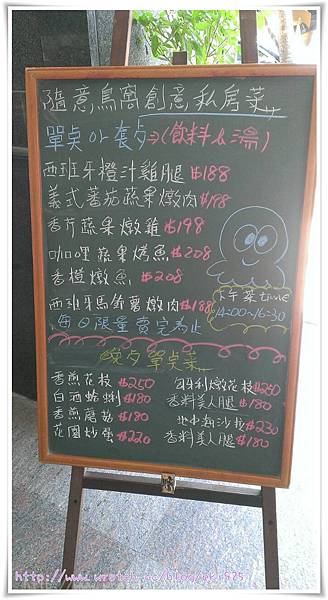 隨意鳥窩創意私房菜
單點 or 套餐⇒(飲料&湯)
西班牙橙汁雞腿 $188
義式蕃茄蔬果燉肉 $198
香芹蔬果燉雞 $198
咖哩蔬果烤魚 $208
香橙燉魚 $208
西班牙馬鈴薯燉肉 $188
每日限量賣完為止
下午茶time
14:00~16:30
晚夕單點菜
香煎花枝 $250
匈牙利燉花枝 $250
白酒蛤蜊 $180
香料美人腿 $180
香煎蘑菇 $180
地中海沙拉 $230
花園炒蛋 $220
香料美人腿 $180